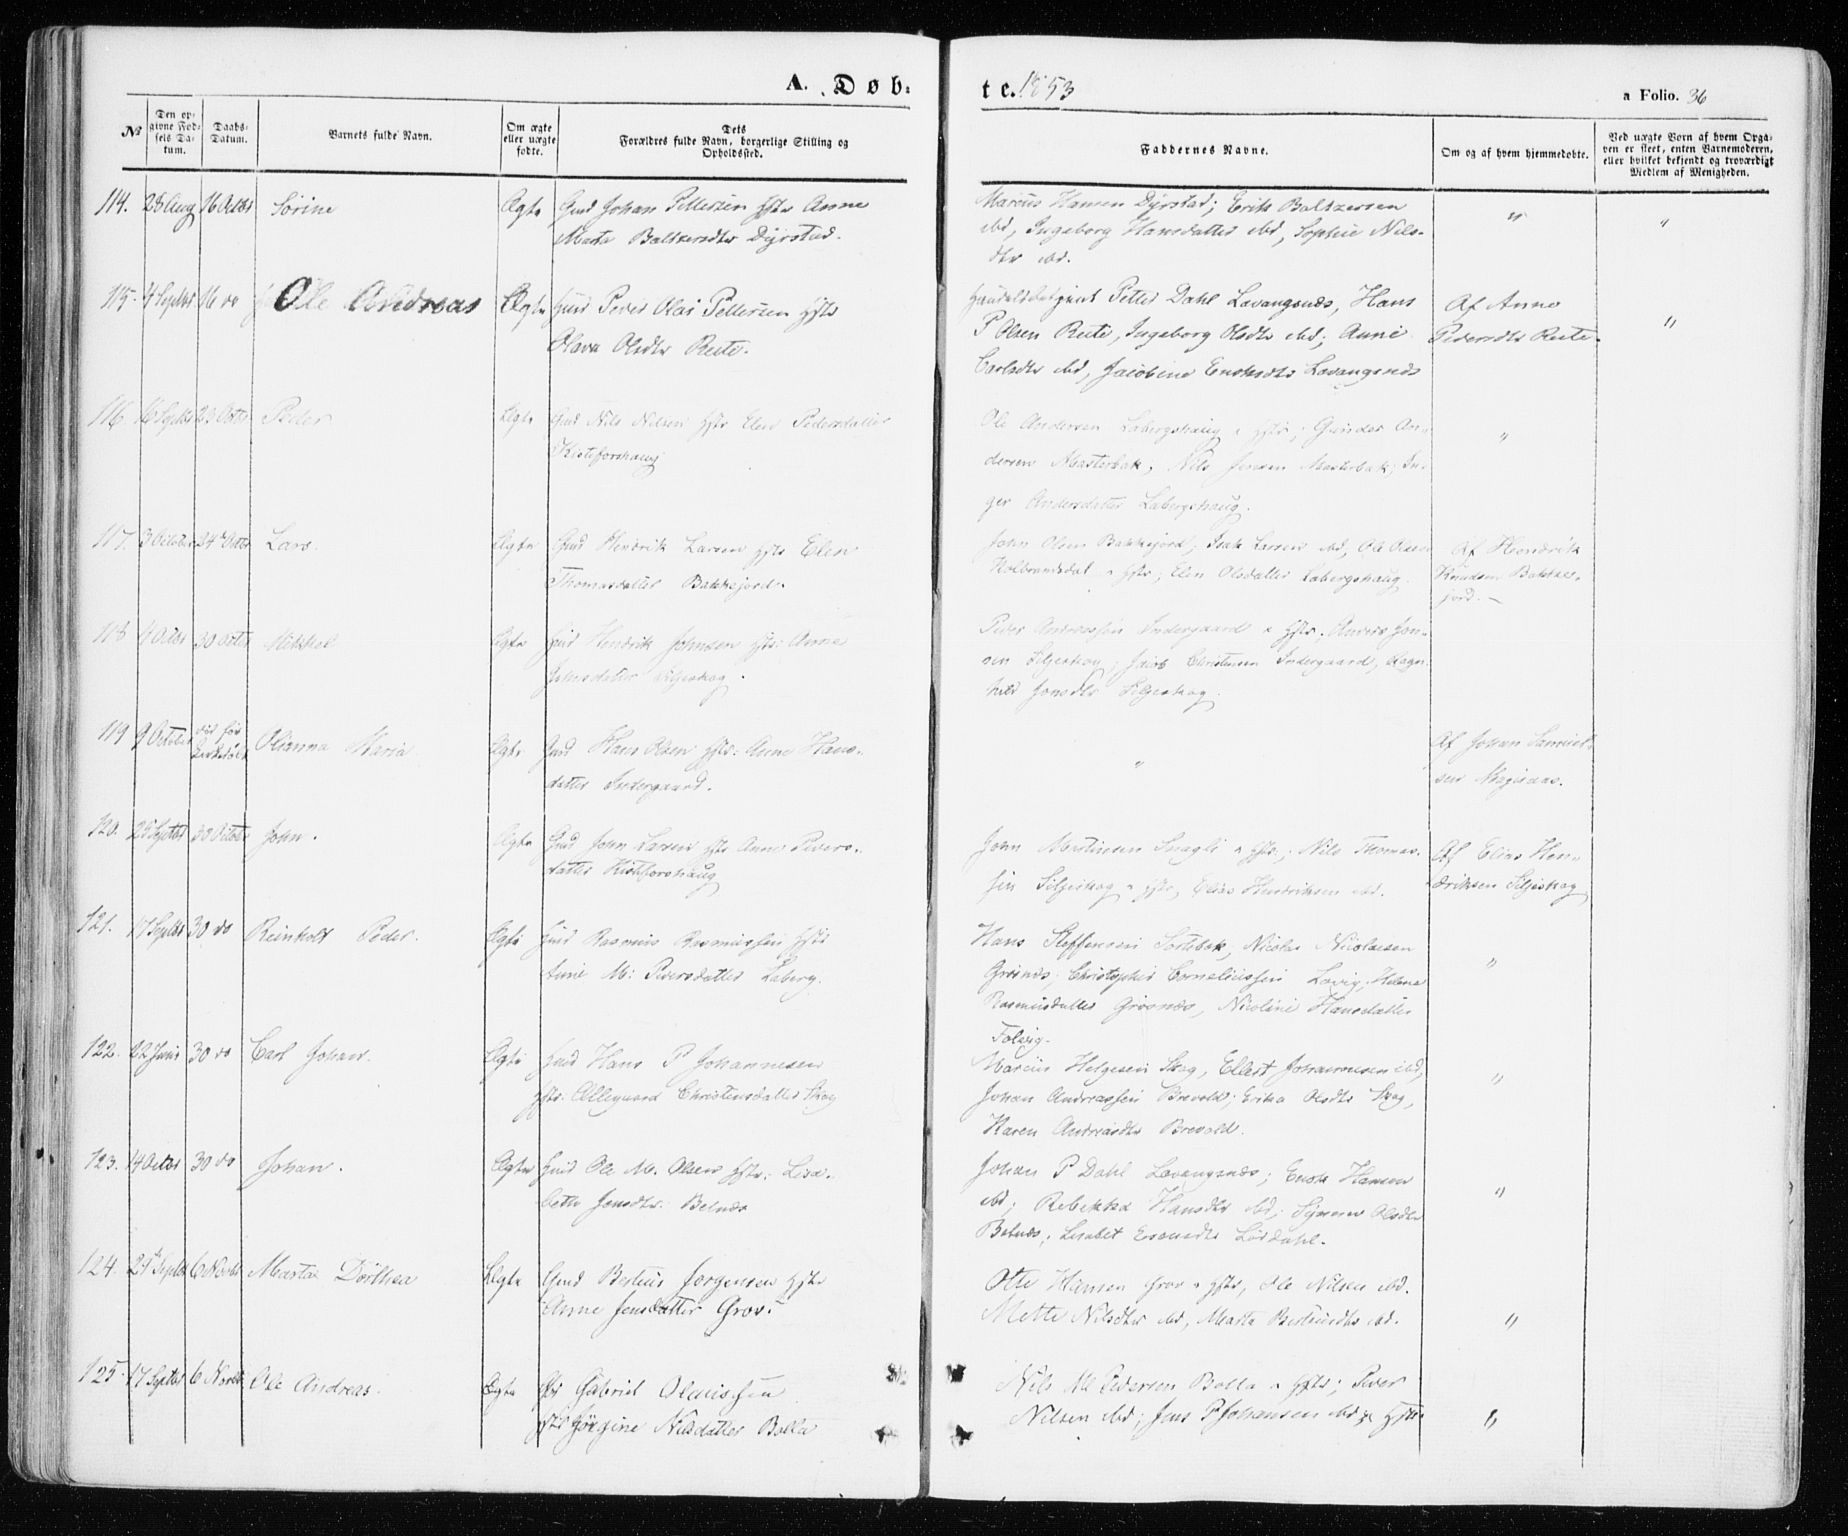 A. Døb:
te. 1853
a Folio. 36
№
Den op-
givne Fød-
sels Da-
tum.
Daabs-
Datum.
Barnets fulde Navn.
Om ægte
eller uægte
fødte.
Dets
Forældres fulde Navn, borgerlige Stilling og
Opholdssted.
Faddernes Navne.
Om og af hvem hjemmedøbte.
Ved uægte Børn af hvem Opga-
ven er skeet, enten Barnemoderen,
eller hvilket bekjendt og troværdigt
Medlem af Menigheden.
114. 28 Aug 16 Octbr Sørine Ægte Gmd Johan Pettersen Hstr Anne
Marta Baltzersdtr Dyrstad.
Marcus Hansen Dyrstad; Erik Baltzersen
ibd, Ingeborg Hansdatter ibd, Sophie Nils-
dtr ibd.
" "
115. 4 Septbr 16 do Ole Andreas Ægte Huusm Peder Olai Pettersen Hstr
Olava Olsdtr Reite.
Handelsbetjent Petter Dahl Lavangsnæs, Hans
P Olsen Reite, Ingeborg Olsdtr ibd; Anne
Carlsdtr ibd, Jacobine Enoksdtr Lavangsnæs
Af Anne
Pedersdtr Reite.
"
116. 16 Septbr 23 Octbr Peder Ægte Gmd Nils Nilsen Hstr Elen Pedersdatter
Kristoforshaug
Ole Andersen Labergshaug & Hstr; Gunder An-
dersen Masterbak; Nils Jensen Masterbak; In-
ger Andersdatter Labergshaug.
"
117. 3 October 24 Octbr Lars. Ægte Gmd Hendrik Larsen Hstr Elen
Thomasdatter Bakkejord.
John Olsen Bakkejord; Isak Larsen ibd, Ole Olsen
Kolbeansdal & Hstr; Elen Olsdatter Labergshaug.
Af Hendrik
Knudsen Bakke-
jord.
118 4 Octbr 30 Octbr Mikkel Ægte Hmd Hendrik Johnsen Hstr: Anne
Jonsdatter Siljeskog.
Peder Andreassen Indergaard & Hstr; Anders Jon-
sen Siljeskog; Jacob Christensen Indergaard, Ragn-
hild Jonsdtr Siljeskog.
119 9 October død før
Kirkedåb Olianna Maria. Ægte Gmd Hans Olsen Hstr: Anne Hans-
datter Indergaard.
"
Af Johan Samuel-
sen Magisaas.
120. 25 Septbr 30 October John. Ægte Gmd John Larsen Hstr Anne Peders-
datter Kistoforshaug
John Mortinsen Snagli & Hstr; Nils Thomas-
sen Siljeskog & Hstr, Elias Hendriksen ibd.
Af Elias Hen-
driksen Siljeskog
121. 17 Septbr 30 do Reinholt Peder. Ægte Hmd Rasmus Rasmussen Hstr
Anne M: Pedersdatter Laberg.
Hans Steffensen Sortebak, Nicolai Nicolaisen
Grøsnæs; Christopher Corneliussen Lavig, Helena
Rasmusdatter Grøsnæs, Nicoline Hansdatter
Folvig.
"
122. 22 Juni 30 do Carl Johan. Ægte Hmd Hans P Johannesen
Hstr: Allegaard Christensdatter Skog
Marcus Helgesen Skog, Ellert Johannesen ibd,
Johan Andreassen Brevold; Erika Olsdtr Skog,
Karen Andreasdtr Brevold.
"
123. 14 Octbr 30 do Johan. Ægte Hmd Ole M. Olsen Hstr: Lisa-
beth Jonsdtr: Belnæs
Johan P Dahl Lavangsnæs; Enok Hansen
ibd; Rebekka Hansdtr ibd; Synnev Olsdtr
Belnæs; Lisabet Lørdahl.
"
124. 27 Septbr 6 Novbr Marta Dorthea Ægte Gmd Bertius Jørgensen Hstr
Anne Jensdatter Grov.
Otte Hansen Grov & Hstr, Ole Nilsen ibd.
Mette Nilsdtr ibd, Marta Bertiusdtr ibd.
"
125. 17 Septbr 6 Novbr Ole Andreas. Ægte Gabriel Olaussen
Hstr Jørgine Nilsdatter Bolla
Nils M Pedersen Bolla & Hstr; Peder
Nilsen ibd; Jens P Johansen ibd & Hstr.
"